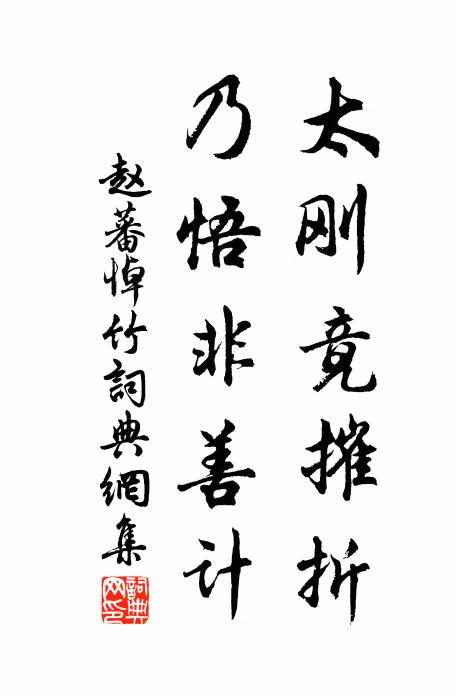 太刚竟摧折
乃悟非善计
赵蕃悼竹詞典網集
詞典网印